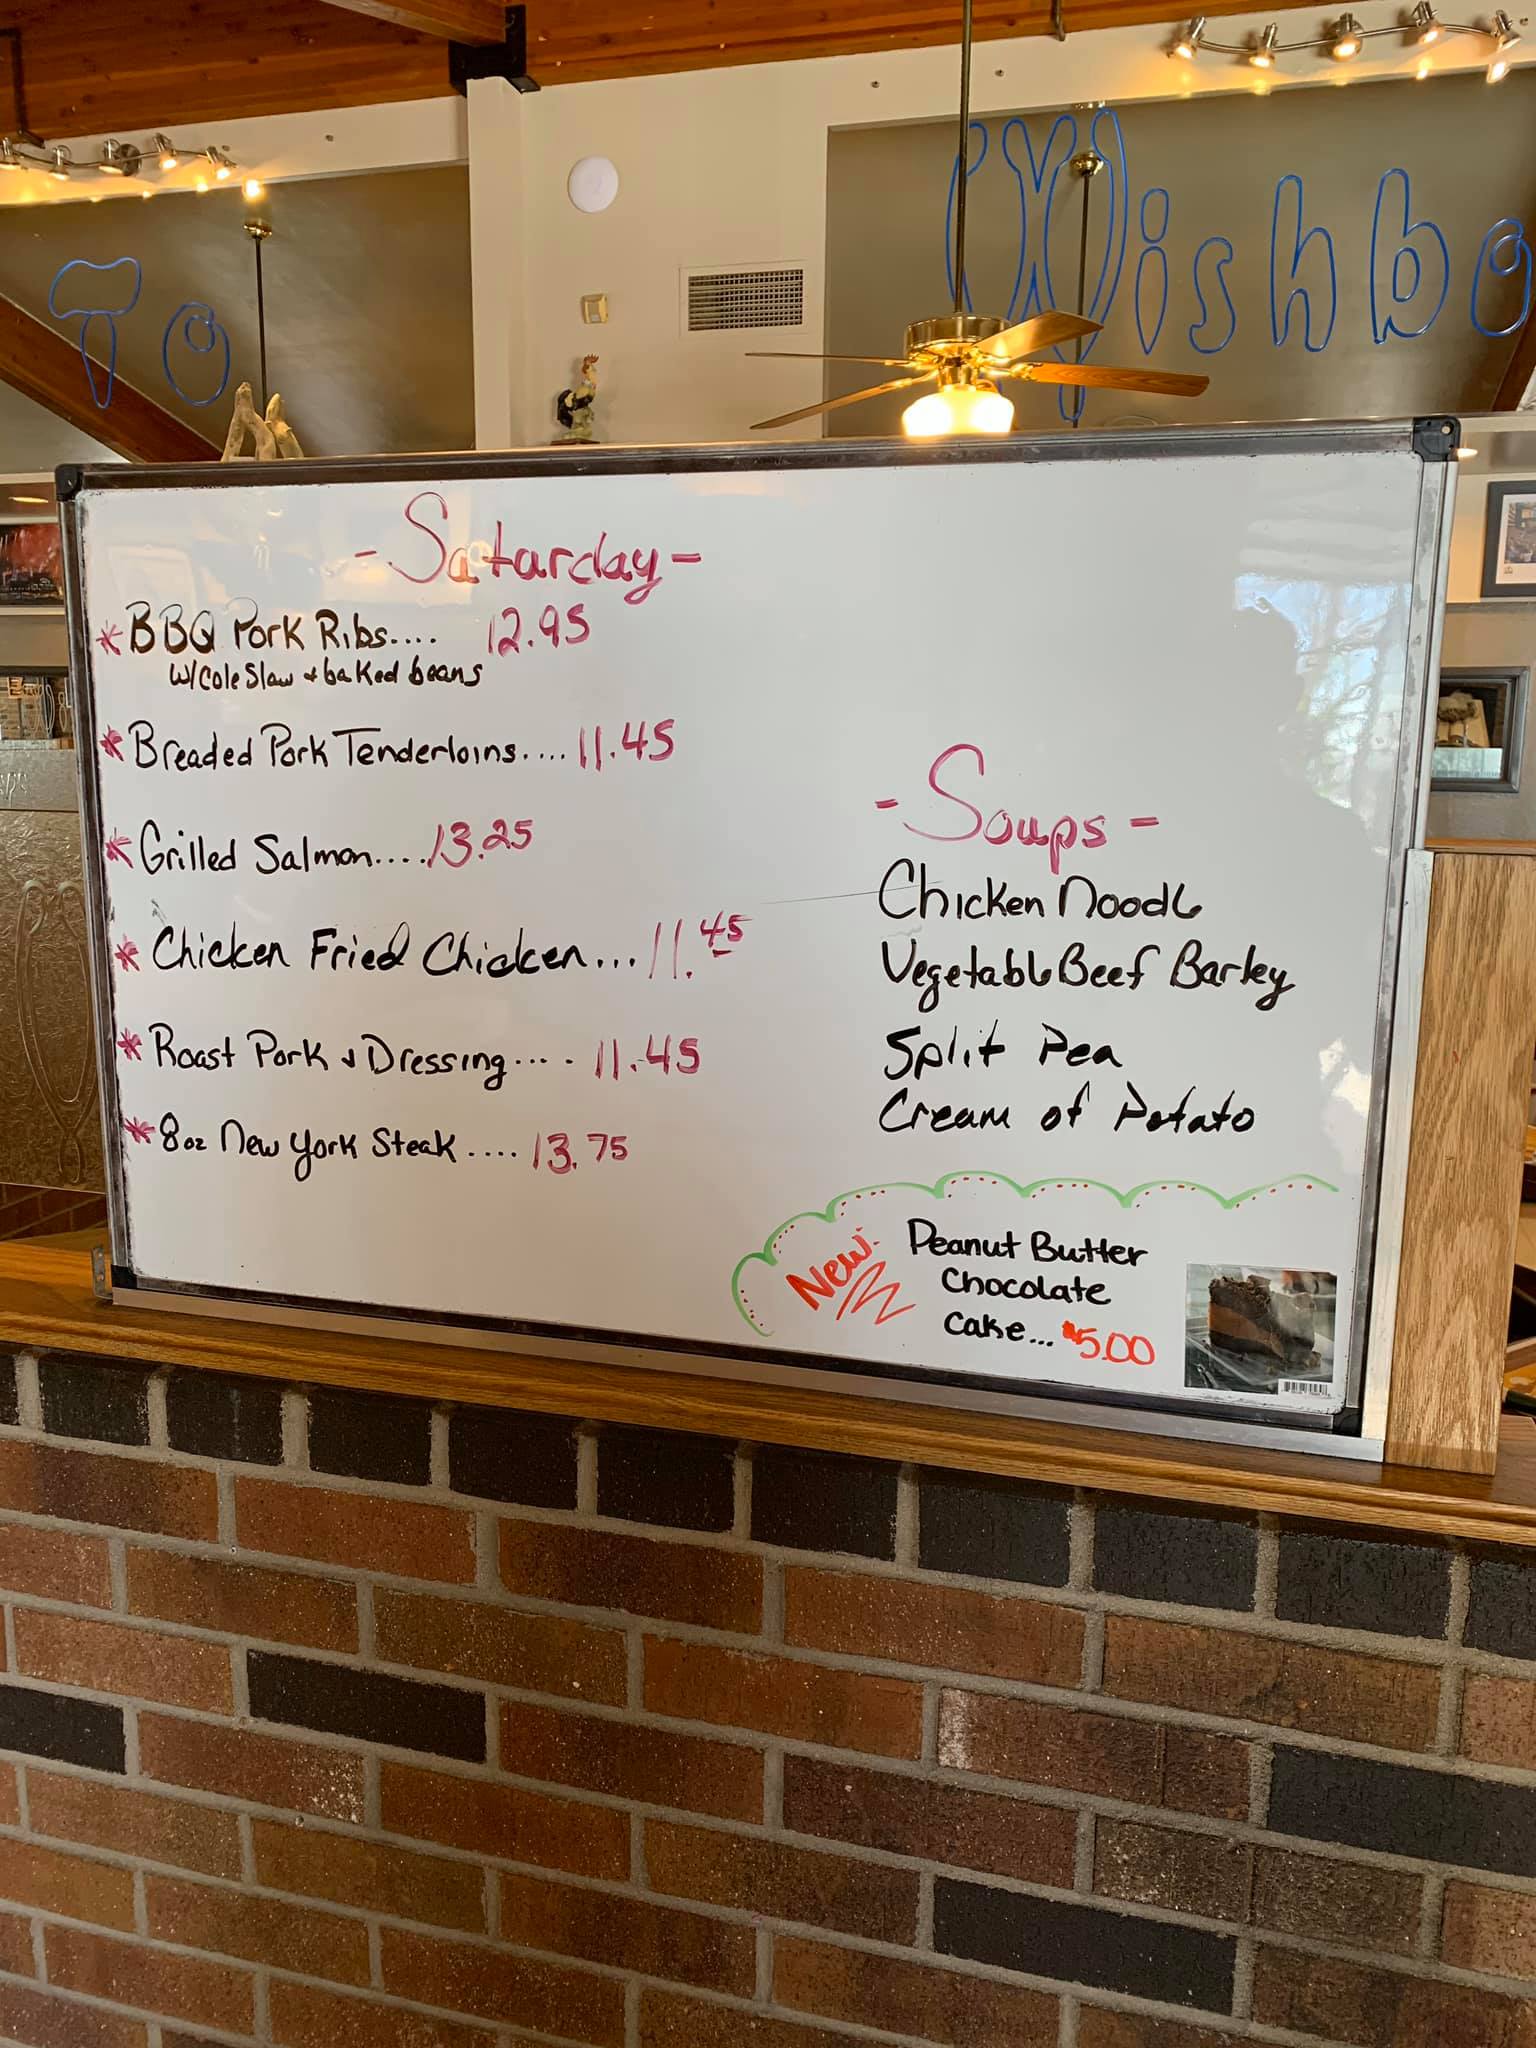 To Wishbo
- Saturday -
* BBQ Pork Ribs.... 12.95
w/ Cole Slaw & baked beans
* Breaded Pork Tenderloins.... 11.45
* Grilled Salmon.... 13.25
* Chicken Fried Chicken... 11.45
* Roast Pork & Dressing.... 11.45
* 8oz New York Steak.... 13.75
- Soups -
Chicken Noodle
Vegetable Beef Barley
Split Pea
Cream of Potato
New!
Peanut Butter
Chocolate
Cake... $5.00